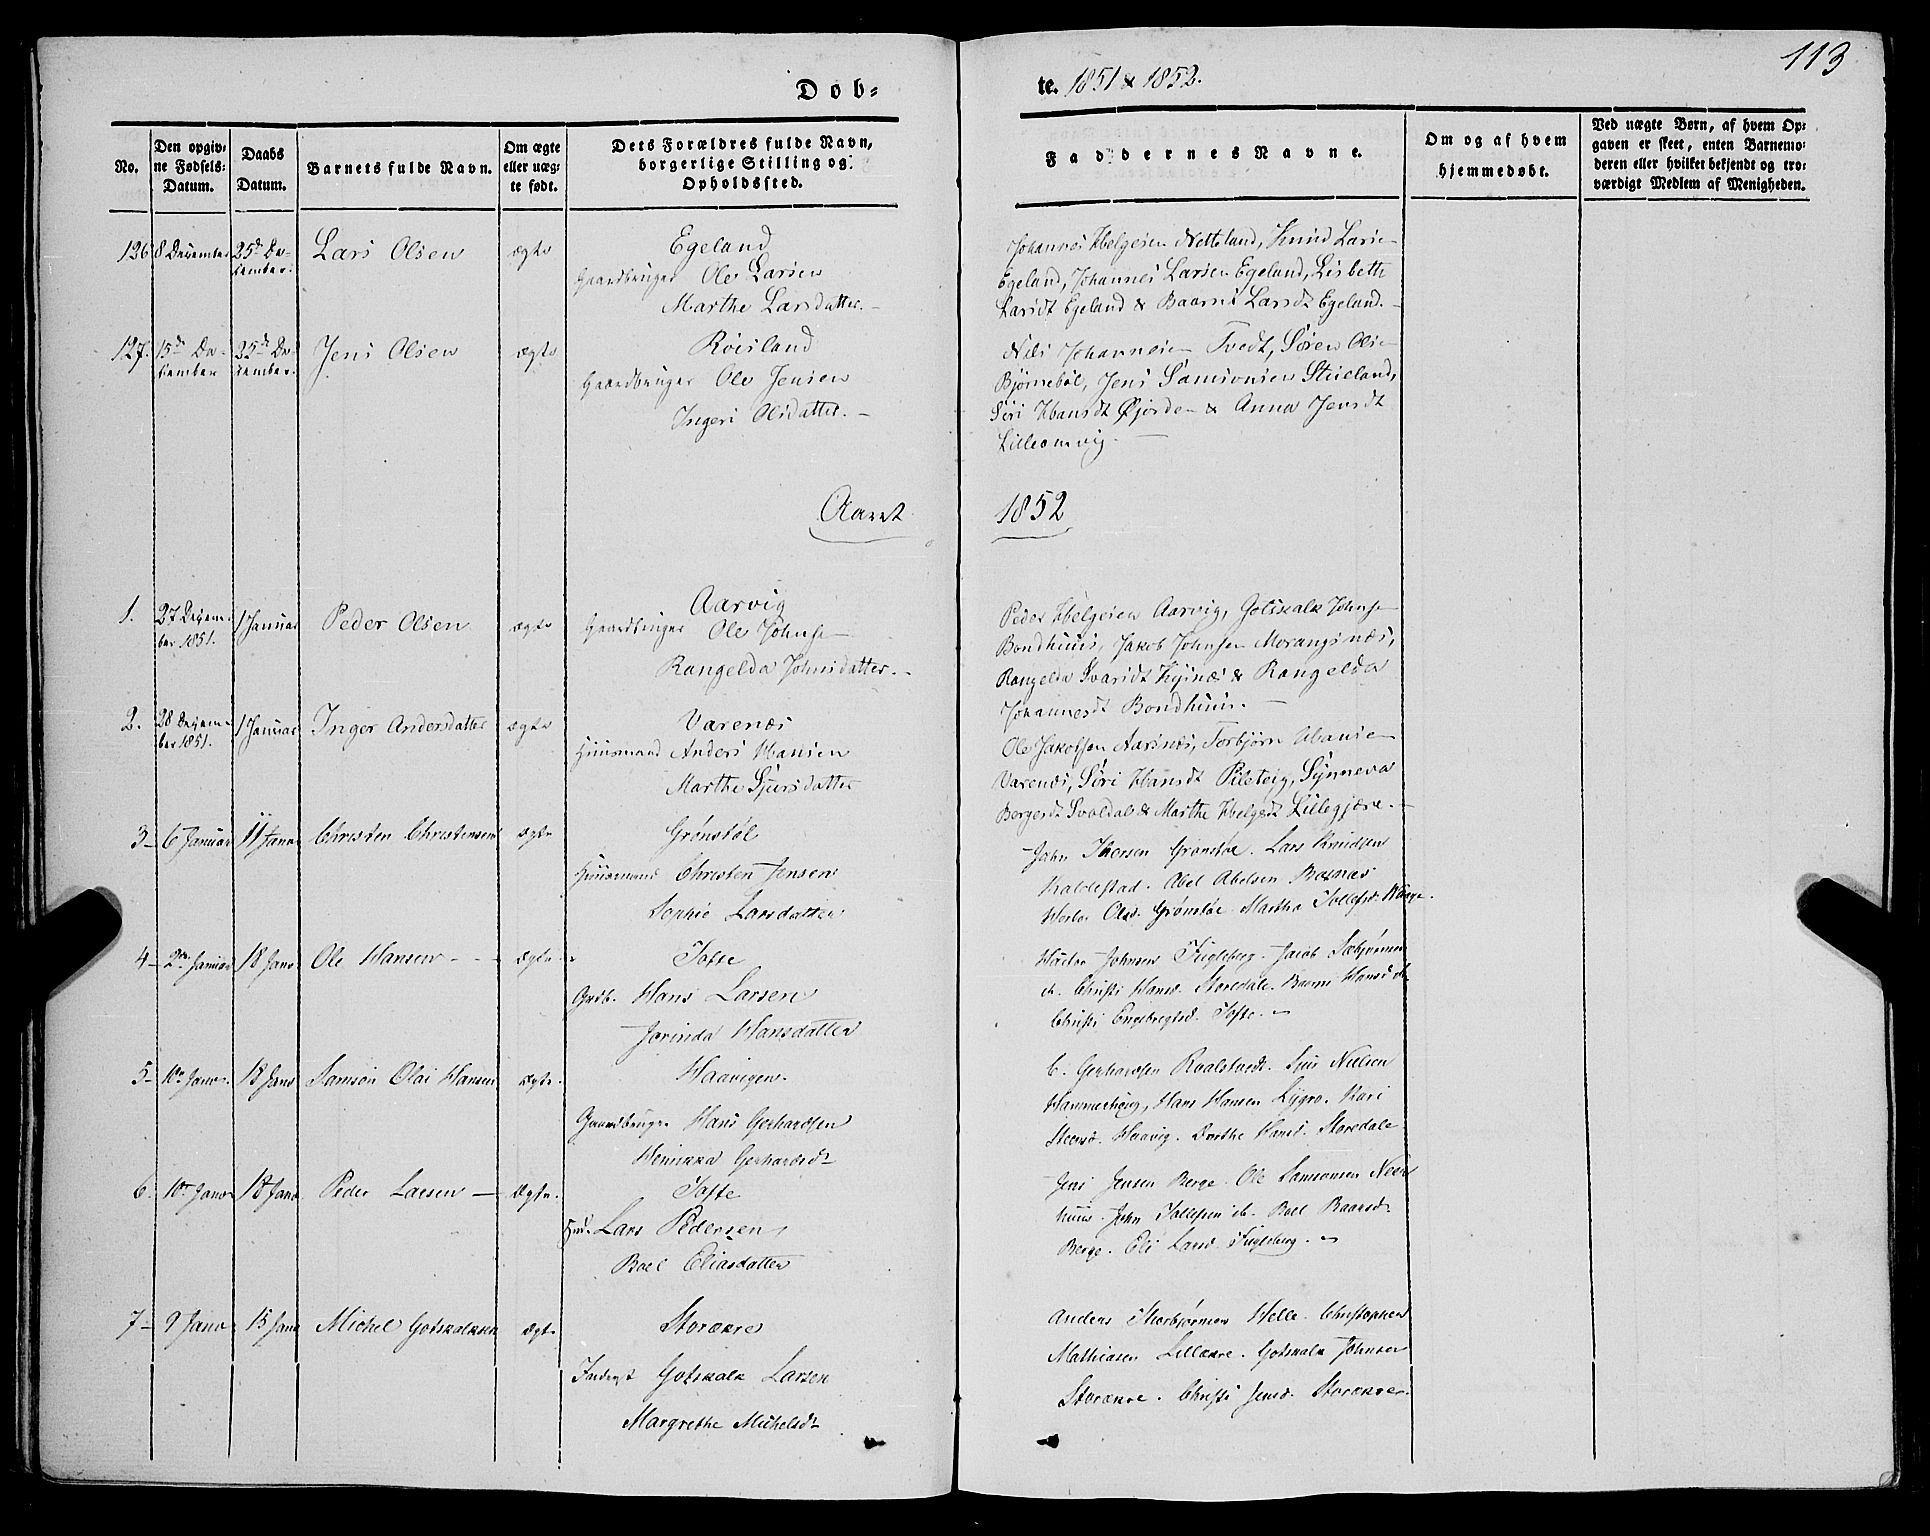 113
Døb=
te. 1851 & 1852.
No.
Den opgiv=
ne Fødsels=
Datum.
Daabs
Datum.
Barnets fulde Navn.
Om ægte
eller uæg=
te født.
Dets Forældres fulde Navn,
borgerlige Stilling og
Opholdssted.
Faddernes Navne.
Om og af hvem
hjemmedøbt.
Ved uægte Børn, af hvem Op=
gaven er skeet, enten Barnemo=
deren eller hvilket bekjendt og tro=
værdigt Medlem af Menigheden.
126 8 December 25de De-
cember. Lars Olsen ægte
Egeland
Gaardbruger Ole Larsen
Marthe Larsdatter. -
Johannes Helgesen Netteland, Knud Larse-
Egeland, Johannes Larsen Egeland, Lisbeth
Larsdt Egeland & Baarni Larsdt Egeland.
127. 15de De-
cember 25de De-
cember. Jens Olsen ægte
Røisland
Gaardbruger Ole Jensen
Ingeri Olsdatter. -
Nils Johannesen Tvedt, Søren Olse-
Bjørnebøl, Jens Samsonsen Stueland,
Siri Hansdt Øjorde- & Anna Jensdt
Lilleomvig. -
Aaret
1852
1. 27 Decem-
ber 1851. 1 Januar Peder Olsen ægte
Aarvig
Gaardbruger Ole Johnse-
Rangelda Johnsdatter. -
Peder Helgesen Aarvig, Gotskalk Johnse-
Bondhuus, Jakob Johnsen Morangsnæs,
Rangelda Svarsdt & Rangelda
Johannesdt Bondhuus. -
2. 28 Decem-
ber 1851. 1 Januar Inger Andersdatter ægte
Varenæs
Huusmand Anders Hansen
Marthe Sjursdatter
Ole Jakobsen Aarsnæs, Torbjørn Hanse-
Varenæs, Siri Hansdt Pileteig, Synneva
Bergesdt Svoldal & Marthe Helgesdt Lillegjære. -
3- 6 Januar 11 Janr Christen Christensen ægte
Grønstøl
Huusmand Christen Jensen
Sophie Larsdatter
John Thorsen Grønstøe. Lars Knudsen
Kaldestad. Abel Abelsen Røsnæs
Olsd. Grønstøe Martha Tollefsd.
4- 2en Januar 18 Janr Ole Hansen - - - ægte
Tofte
Grdb. Hans Larsen
Jorinda Hansdatter
Johnsen Fugleberg. Jacob Sæbjørnsen
do. Christi Hansd. Storedale. Baarni Hansd do
Christi Engebregtsd. Tofte. -
5- 10en Janr. 18 Janr Samson Olai Hansen ægte.
Haavigen.
Gaardbruger Hans Gerhardsen
Henrikka Gerhardsdr
C. Gerhardsen Sjur Nielsen
Hammerhoug, Hans Hansen Lygre. Kari
Haavig. Dorthe Hansd. Storedale
6. 10en Janr 18 Janr Peder Larsen - ægte.
Tofte
Lars Pedersen
Boel Eliasdatter
Jens Jensen Berge. Ole Samsonsen Neder
huus. John Tollefsen do. Boel Baardsd.
Berge. Eli Larsd. Fugleberg. -
7- 9 Janr 15 Janr Michel Gotskalksen ægte
Storækre
Inderst Gotskalk Larsen
Margrethe Michelsdr
Anders Thorbjørnsen Helle. Christopher
Mathiasen Lillækre. Gotskalk Johnsen
Storækre. Christi Jensd. Storækre.